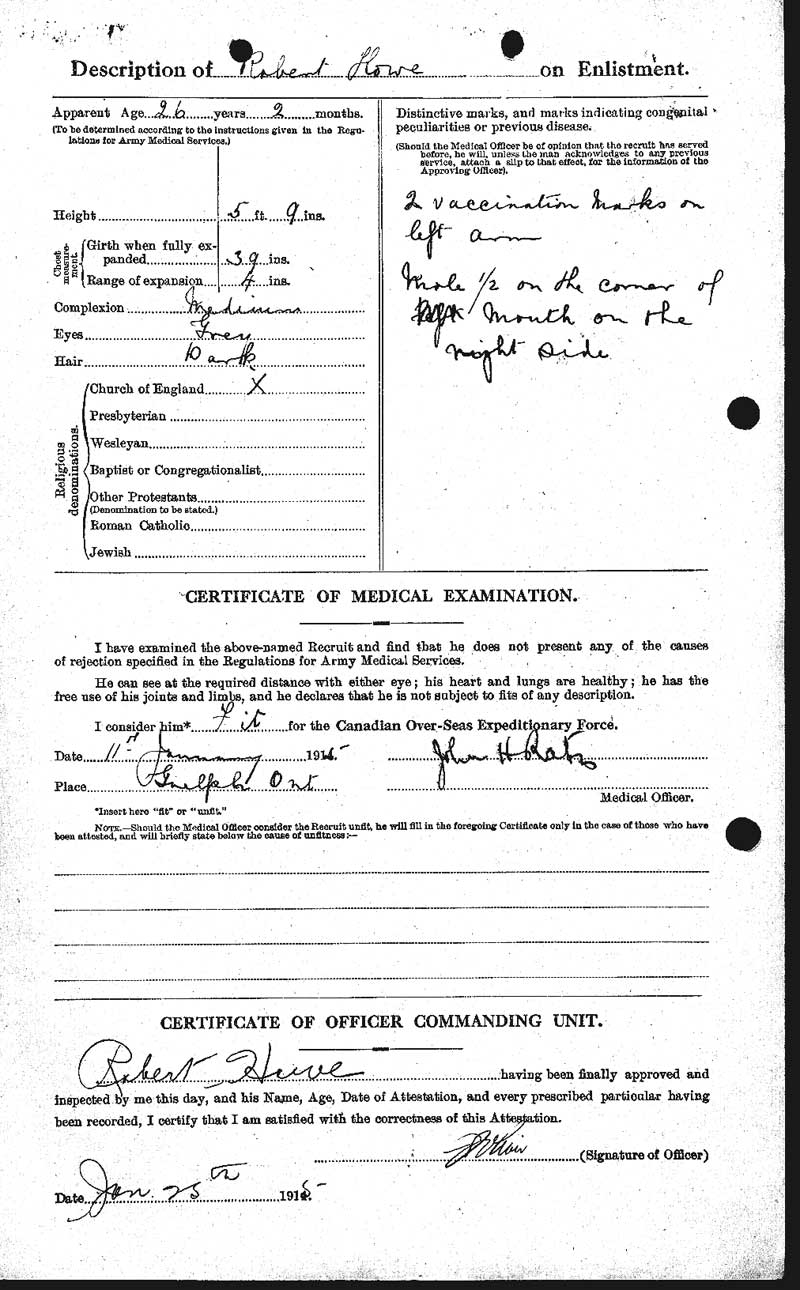 Description of Robert Howe on Enlistment.
Apparent Age 26 years 2 months.
(To be determined according to the instructions given in the Regu-
lations for Army Medical Services.)
Height 5 ft. 9 ins.
Chest measure-
ment.
Girth when fully ex-
panded 39 ins.
Range of expansion 4 ins.
Complexion Medium
Eyes Grey
Hair Dark
Religious
denominations.
Church of England X
Presbyterian
Wesleyan
Baptist or Congregationalist
Other Protestants
(Denomination to be stated.)
Roman Catholic
Jewish
Distinctive marks, and marks indicating congenital
peculiarities or previous disease.
(Should the Medical Officer be of opinion that the recruit has served
before, he will, unless the man acknowledges to any previous
service, attach a slip to that effect, for the information of the
Approving Officer).
2 vaccination marks on
left arm
Mole 1/2 on the corner of
Mouth on the
right side
CERTIFICATE OF MEDICAL EXAMINATION.
I have examined the above-named Recruit and find that he does not present any of the causes
of rejection specified in the Regulations for Army Medical Services.
He can see at the required distance with either eye; his heart and lungs are healthy; he has the
free use of his joints and limbs, and he declares that he is not subject to fits of any description.
I consider him* Fit for the Canadian Over-Seas Expeditionary Force.
Date 11th January 1915
Place Guelph Ont
John H
Medical Officer.
*Insert here "fit" or "unfit."
NOTE.—Should the Medical Officer consider the Recruit unfit, he will fill in the foregoing Certificate only in the case of those who have
been attested, and will briefly state below the cause of unfitness:—
CERTIFICATE OF OFFICER COMMANDING UNIT.
Robert Howe having been finally approved and
inspected by me this day, and his Name, Age, Date of Attestation, and every prescribed particular having
been recorded, I certify that I am satisfied with the correctness of this Attestation.
(Signature of Officer)
Date Jan. 25th 1915